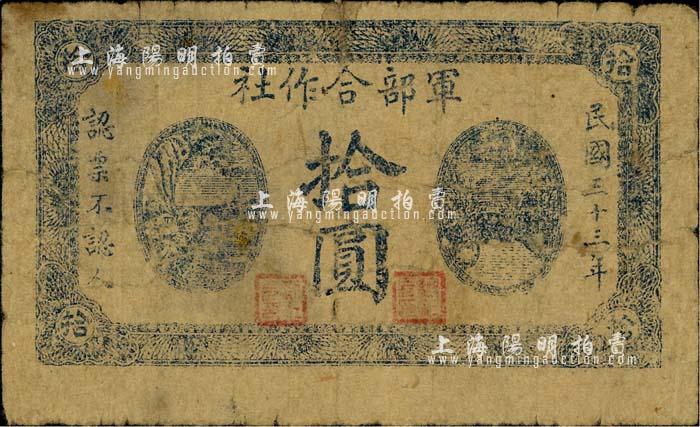 上海陽明拍賣
www.yangmingauction.com
拾
軍部合作社
民國三十三年
認票不認人
拾圓
上海陽明拍賣
www.yangmingauction.com
拾
上海陽明拍賣
www.yangmingauction.com